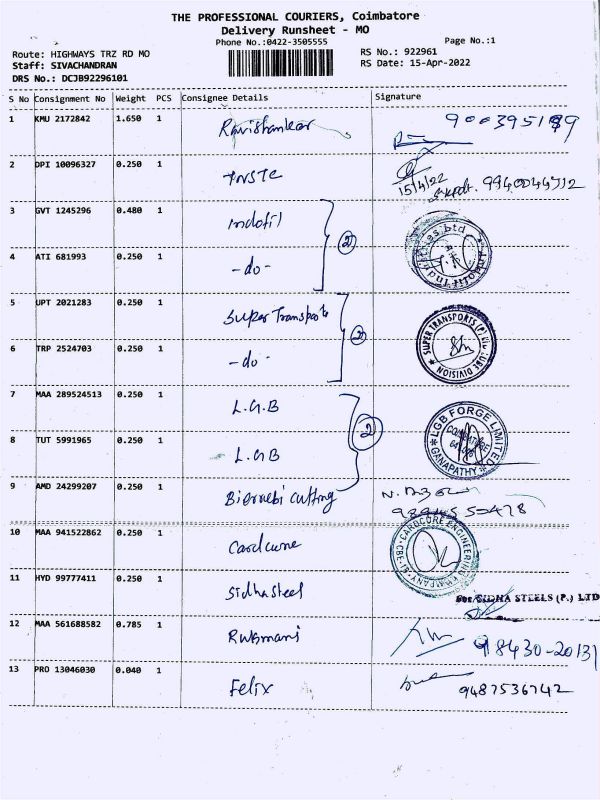 THE PROFESSIONAL COURIERS, Coimbatore
Delivery Runsheet - MO
Phone No.:0422-3505555
Page No.:1
Route: HIGHWAYS TRZ RD MO
RS No.: 922961
Staff: SIVACHANDRAN
RS Date: 15-Apr-2022
DRS No.: DCJB92296101
S No Consignment No Weight PCS Consignee Details Signature
1 KMU 2172842 1.650 1 Ravishankar
2 DPI 10096327 0.250 1 TNSTC
15/4/22 9940044712
3 GVT 1245296 0.480 1 Indofil
2
4 ATI 681993 0.250 1 -do-
5 UPT 2021283 0.250 1 Super Transports
2
SUPER TRANSPORTS (P) LTD DIVISION
6 TRP 2524703 0.250 1 -do-
7 MAA 289524513 0.250 1 L.G.B
2
LGB FORGE LIMITED
COIMBATORE
GANAPATHY
8 TUT 5991965 0.250 1 L.G.B
9 AMD 24299207 0.250 1 cutting
10 MAA 941522862 0.250 1 Cardcore
CARDCORE ENGINEERING COMPANY
11 HYD 99777411 0.250 1 Sidha Steel
For SIDHA STEELS (P.) LTD
12 MAA 561688582 0.785 1 Rukmani 98430-20131
13 PRO 13046030 0.040 1 Felix 9487536742